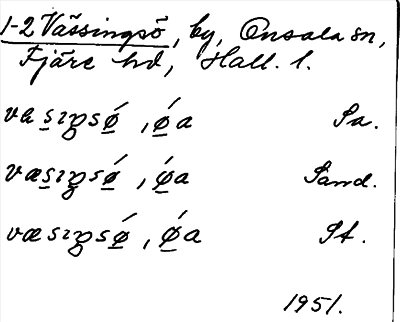 1-2 Vässingsö, by, Onsala sn,
Fjäre hd, Hall. l.
va s̲ıŋsǿ̲, ǿ̲a Sa.
væs̲ıŋsǿ̲, ǿ̲a Sand.
væsıŋsǿ̲, ǿ̲a St.
1951.